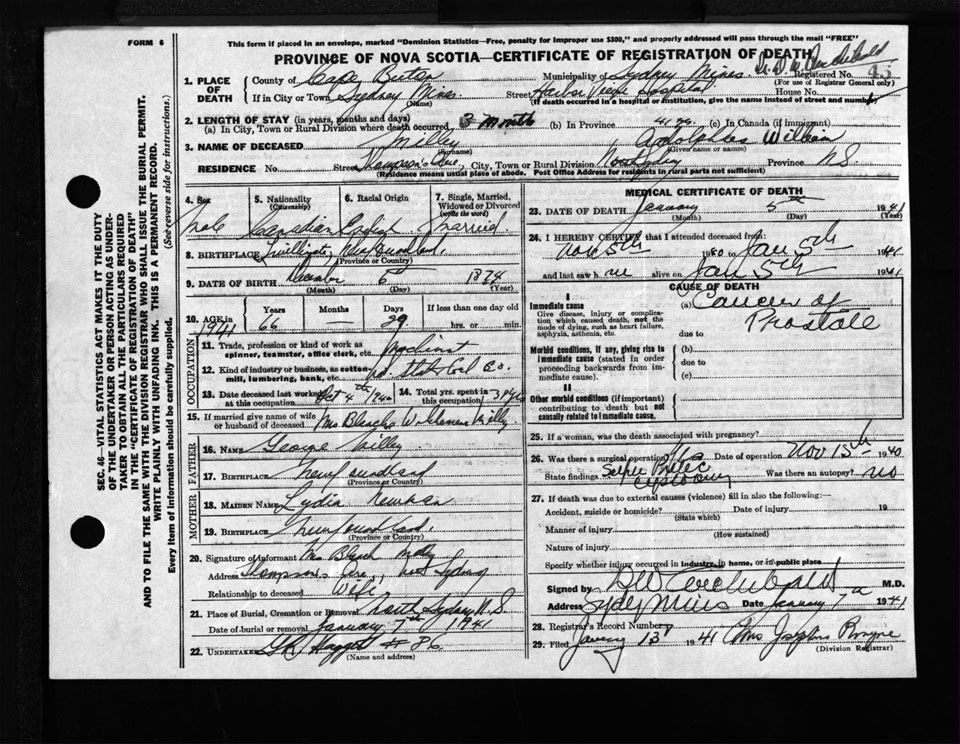 FORM 6
This form if placed in an envelope, marked "Dominion Statistics—Free, penalty for improper use $300," and properly addressed will pass through the mail "FREE"
PROVINCE OF NOVA SCOTIA—CERTIFICATE OF REGISTRATION OF DEATH
1. PLACE OF DEATH
County of Cape Breton
Municipality of Sydney Mines
Registered No.
(For use of Registrar General only)
If in City or Town Sydney Mines
(Name)
Street Harbor View Hospital
House No.
(If death occurred in a hospital or institution, give the name instead of street and number)
2. LENGTH OF STAY (in years, months and days)
(a) In City, Town or Rural Division where death occurred 3 Month (b) In Province 41 yrs. (c) In Canada (if immigrant)
3. NAME OF DECEASED Milly Adolphus William
(Surname) (Given name or names)
RESIDENCE No. Street Thompson's Ave., City, Town or Rural Division North Sydney Province N.S.
(Residence means usual place of abode. Post Office Address for residents in rural parts not sufficient)
4. Sex
5. Nationality (Citizenship)
6. Racial Origin
7. Single, Married, Widowed or Divorced (write the word)
Male Canadian English Married
8. BIRTHPLACE Twillingate, Newfoundland
(Province or Country)
9. DATE OF BIRTH December 1874
(Month) (Day) (Year)
10. AGE in Years Months Days If less than one day
1941 66 — 29 hrs. or min.
OCCUPATION
11. Trade, profession or kind of work as spinner, teamster, office clerk, etc.
12. Kind of industry or business, as cotton mill, lumbering, bank, etc. Coal Co.
13. Date deceased last worked at this occupation Oct 4th 1940
14. Total yrs. spent in this occupation
15. If married give name of wife or husband of deceased Mrs Milly
FATHER
16. NAME George Milly
17. BIRTHPLACE Newfoundland
(Province or Country)
MOTHER
18. MAIDEN NAME Lydia Newman
19. BIRTHPLACE Newfoundland
(Province or Country)
20. Signature of Informant Mrs Milly
Address Thompsons Ave., Sydney
Relationship to deceased Wife
21. Place of Burial, Cremation or Removal North Sydney N.S.
Date of burial or removal January 7th 1941
22. UNDERTAKER
(Name and address)
MEDICAL CERTIFICATE OF DEATH
23. DATE OF DEATH January 5th 1941
(Month) (Day) (Year)
24. I HEREBY CERTIFY that I attended deceased from:
Nov 5th 1940 to Jan 5th 1941
and last saw him alive on Jan 5th 1941
CAUSE OF DEATH
I
Immediate cause
Give disease, injury or complication which caused death, not the mode of dying, such as heart failure, asphyxia, asthenia, etc.
(a) Cancer of Prostate
due to
Morbid conditions, if any, giving rise to immediate cause (stated in order proceeding backwards from immediate cause).
(b)
due to
(c)
II
Other morbid conditions (if important) contributing to death but not causally related to immediate cause.
25. If a woman, was the death associated with pregnancy?
26. Was there a surgical operation? Yes Date of operation Nov 15th 1940
State findings Supra Pubic Cystotomy Was there an autopsy? no
27. If death was due to external causes (violence) fill in also the following:—
Accident, suicide or homicide? Date of injury 19
(State which)
Manner of injury
(How sustained)
Nature of injury
Specify whether injury occurred in industry, in home, or in public place
Signed by D W Archibald M.D.
Address Sydney Mines Date January 7th 1941
28. Registrar's Record Number
29. Filed January 13 1941 Mrs Josephine
(Division Registrar)
SEC. 46—VITAL STATISTICS ACT MAKES IT THE DUTY
OF THE UNDERTAKER OR PERSON ACTING AS UNDERTAKER
TO OBTAIN ALL THE PARTICULARS REQUIRED
IN THE "CERTIFICATE OF REGISTRATION OF DEATH"
AND TO FILE THE SAME WITH THE DIVISION REGISTRAR WHO SHALL ISSUE THE BURIAL PERMIT.
WRITE PLAINLY WITH UNFADING INK. THIS IS A PERMANENT RECORD.
Every item of information should be carefully supplied. (See reverse side for instructions.)